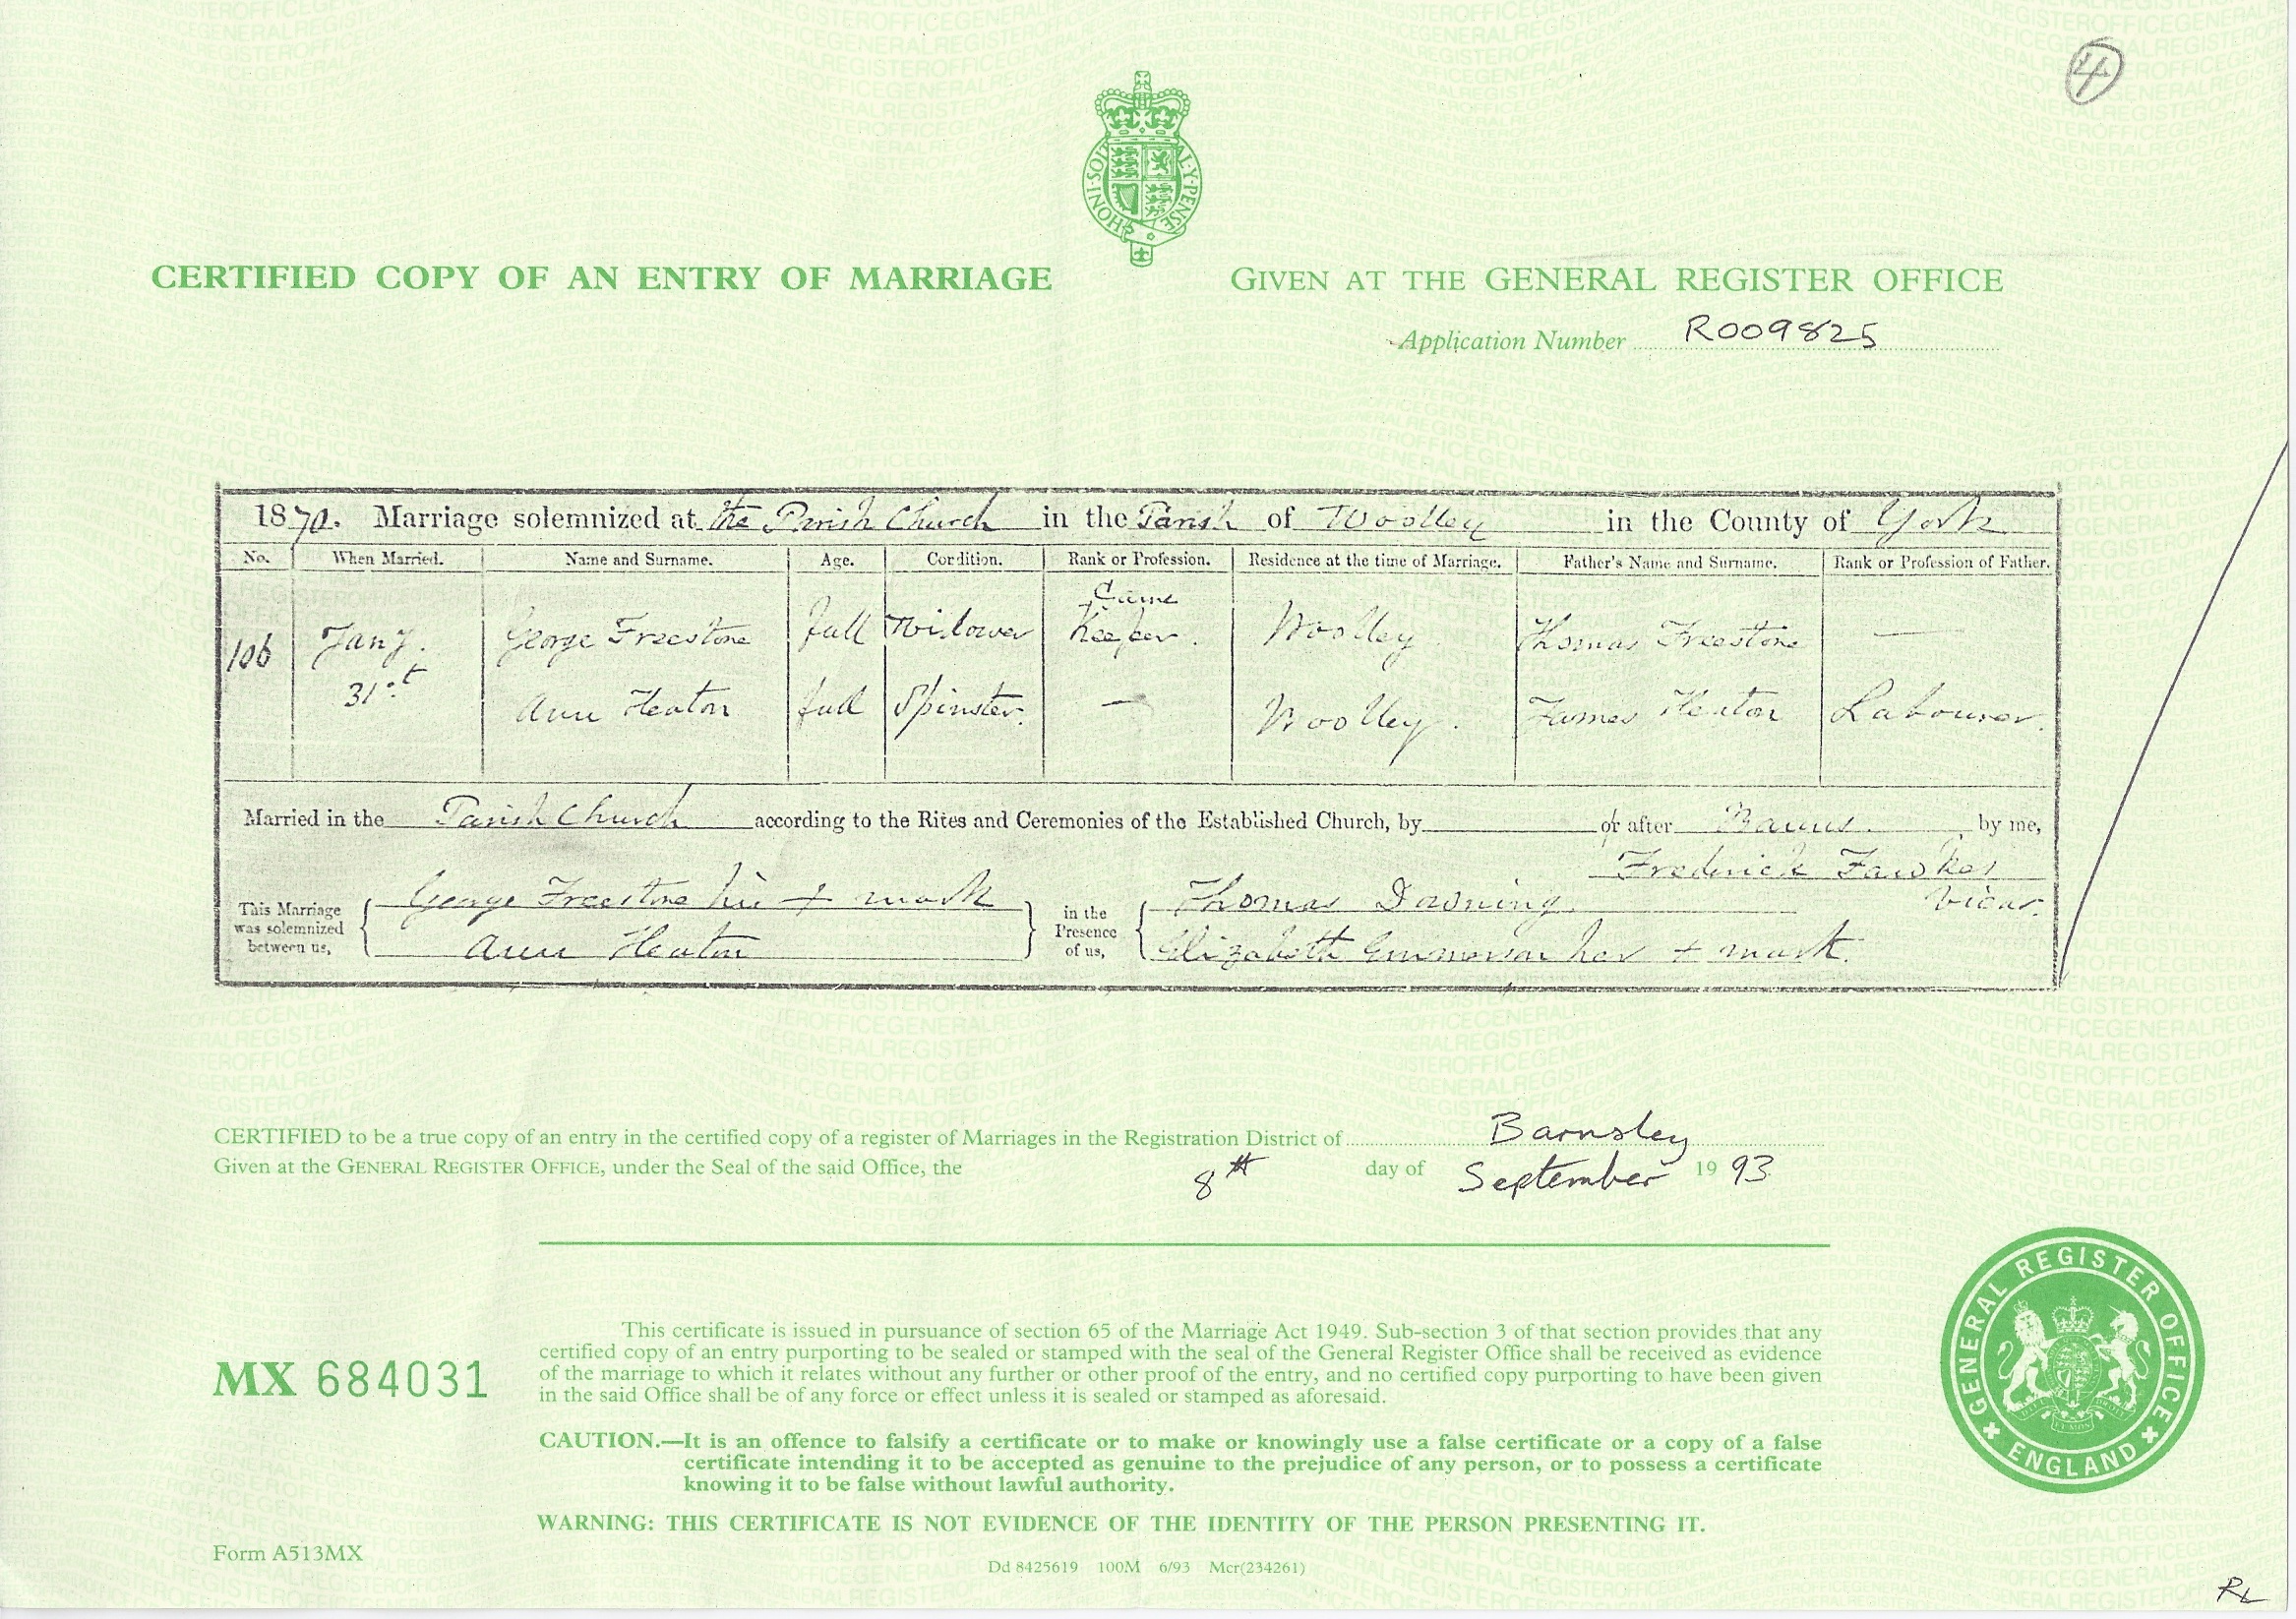 4
HONI·SOIT AL·Y·PENSE
CERTIFIED COPY OF AN ENTRY OF MARRIAGE
GIVEN AT THE GENERAL REGISTER OFFICE
Application Number R009825
1870. Marriage solemnized at the Parish Church in the Parish of Woolley in the County of York
No. When Married. Name and Surname. Age. Condition. Rank or Profession. Residence at the time of Marriage. Father's Name and Surname. Rank or Profession of Father.
106 Jany. 31st George Freestone full Widower Game Keeper. Woolley Thomas Freestone —
Ann Heaton full Spinster. — Woolley. James Heaton Labourer.
Married in the Parish Church according to the Rites and Ceremonies of the Established Church, by or after Banns. by me,
Frederick Fawkes
Vicar.
This Marriage was solemnized between us, George Freestone his + mark
Ann Heaton
in the Presence of us, Thomas Downing.
Elizabeth her + mark.
CERTIFIED to be a true copy of an entry in the certified copy of a register of Marriages in the Registration District of Barnsley
Given at the GENERAL REGISTER OFFICE, under the Seal of the said Office, the 8th day of September 1993
MX 684031
This certificate is issued in pursuance of section 65 of the Marriage Act 1949. Sub-section 3 of that section provides that any
certified copy of an entry purporting to be sealed or stamped with the seal of the General Register Office shall be received as evidence
of the marriage to which it relates without any further or other proof of the entry, and no certified copy purporting to have been given
in the said Office shall be of any force or effect unless it is sealed or stamped as aforesaid.
CAUTION.—It is an offence to falsify a certificate or to make or knowingly use a false certificate or a copy of a false
certificate intending it to be accepted as genuine to the prejudice of any person, or to possess a certificate
knowing it to be false without lawful authority.
WARNING: THIS CERTIFICATE IS NOT EVIDENCE OF THE IDENTITY OF THE PERSON PRESENTING IT.
GENERAL REGISTER OFFICE
ENGLAND
Form A513MX
Dd 8425619 100M 6/93 Mcr(234261)
RL